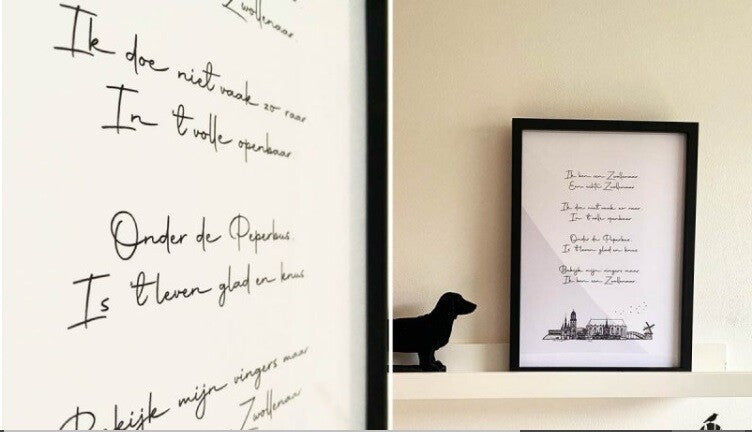 Zwollenaar
Ik doe niet vaak zo raar
In 't volle openbaar
Onder de Peperbus
Is 't leven glad en knus
Bekijk mijn vingers maar
Zwollenaar
Ik ben een Zwollenaar
Een echte Zwollenaar
Ik doe niet vaak zo raar
In 't volle openbaar
Onder de Peperbus
Is 't leven glad en knus
Bekijk mijn vingers maar
Ik ben een Zwollenaar